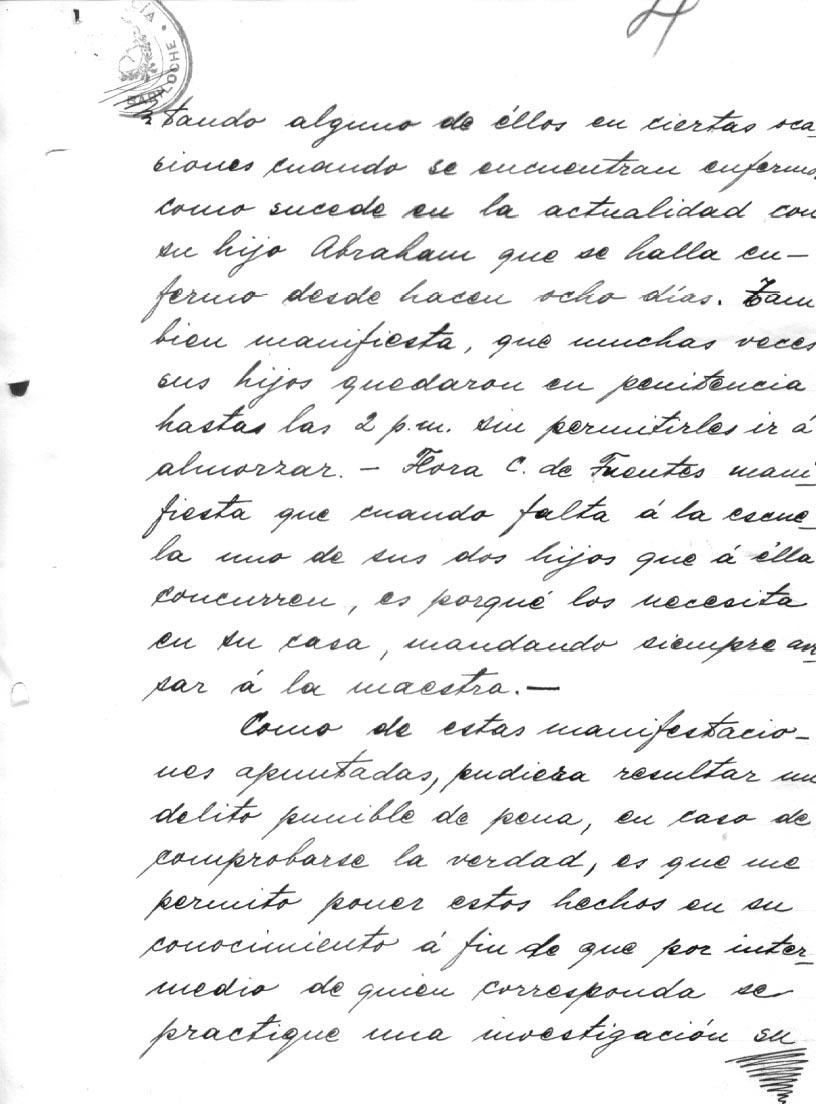 4
CIA
BARILOCHE
tando alguno de éllos en ciertas oca
siones cuando se encuentran enfermos
como sucede en la actualidad con
su hijo Abraham que se halla en-
fermo desde hacen ocho días. Tam
bien manifiesta, que muchas veces
sus hijos quedaron en penitencia
hastas las 2 p.m. sin permitirles ir á
almorzar. - Flora C. de Fuentes mani
fiesta que cuando falta á la escue_
la uno de sus dos hijos que á élla
concurren, es porqué los necesita
en su casa, mandando siempre avi
sar á la maestra.—
Como de estas manifestacio-
nes apuntadas, pudiera resultar un
delito punible de pena, en caso de
comprobarse la verdad, es que me
permito poner estos hechos en su
conocimiento á fin de que por inter_
medio de quien corresponda se
practique una investigación su